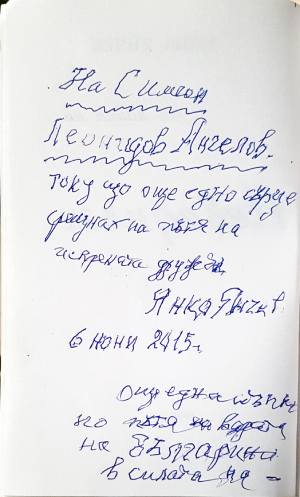 На Симеон
Леонидов Ангелов.
Току що още едно сърце
срещнах на пътя на
искрената дружба
Янко
6 юни 2015 г.
Още една стъпка
по пътя на вярата
на България
в силата на -